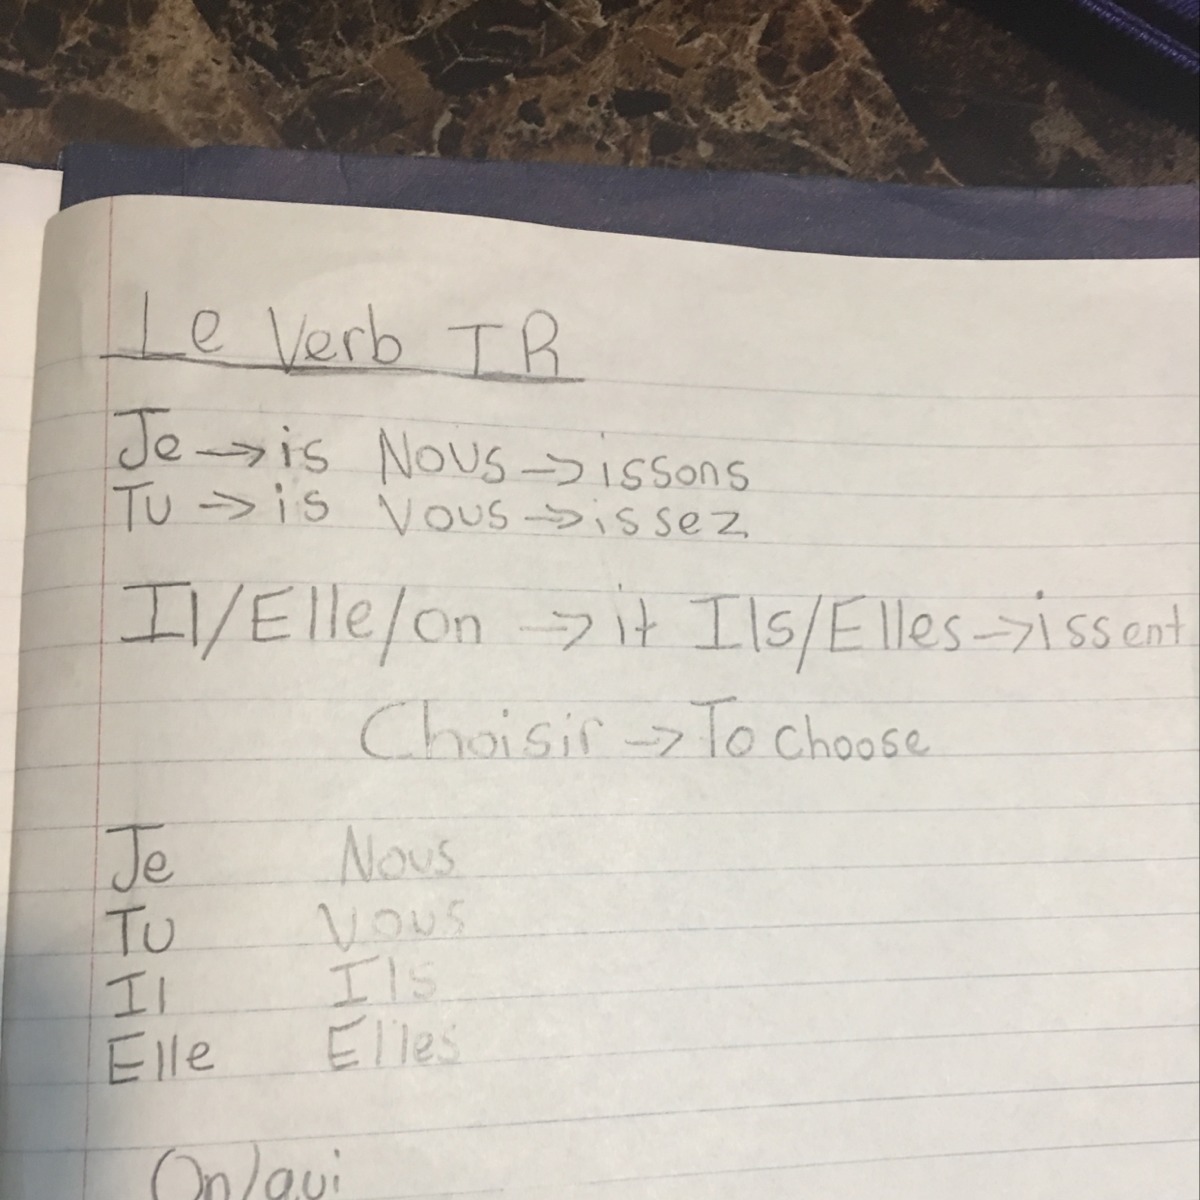 Le Verb IR
Je → is Nous → issons
Tu → is Vous → issez
Il/Elle/on → it Ils/Elles → issent
Choisir → To choose
Je Nous
Tu Vous
Il Ils
Elle Elles
On/qui